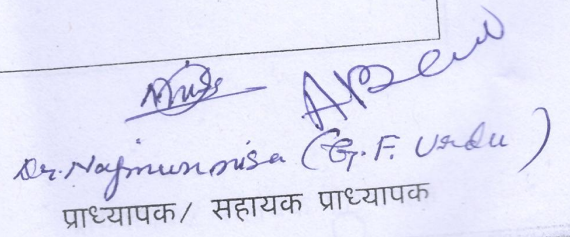 Dr. Najmunnisa (G.F. Urdu)
प्राध्यापक/ सहायक प्राध्यापक